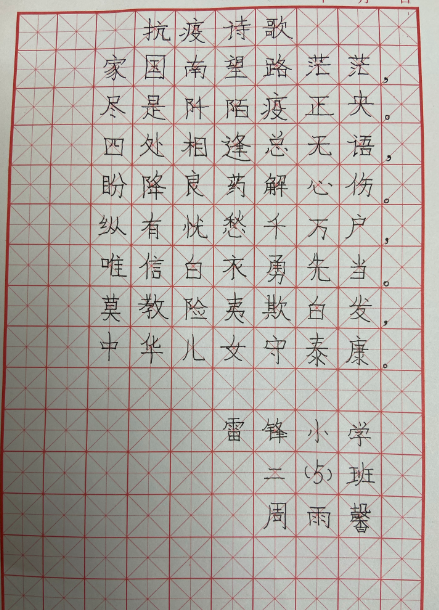 抗疫诗歌
家国南望路茫茫，
尽是阡陌疫正央。
四处相逢总无语，
盼降良药解心伤。
纵有忧愁千万户，
唯信白衣勇先当。
莫教险夷欺白发，
中华儿女守泰康。
雷锋小学
二(5)班
周雨馨